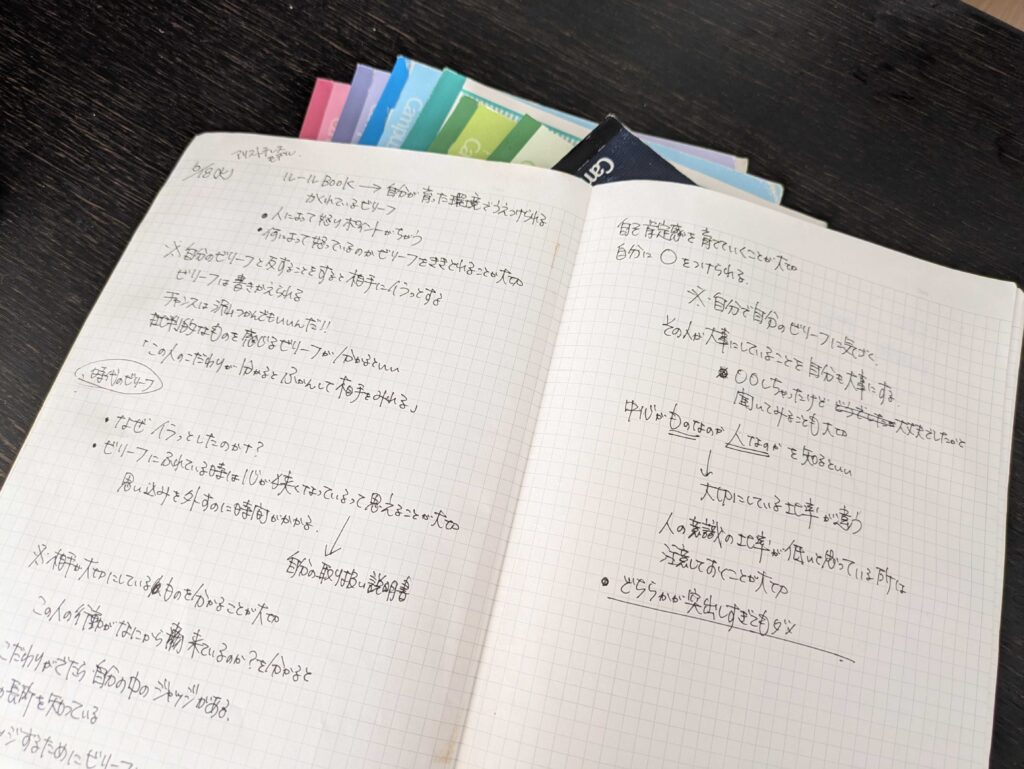 Campus
Cam
Cam
9/18(火)
ルールBook → 自分が育った環境でうえつけられる
かくれているビリーフ
・人によって怒りポイントがちがう
・何によって怒っているのかビリーフをききとれることが大切
※自分のビリーフと反することをすると相手にイラっとする
ビリーフは書きかえられる
チャンスは つかんでもいいんだ!!
批判的なものを感じるビリーフが分かるといい
「この人のこだわりが分かるとふかんして相手をみれる」
時代のビリーフ
・なぜイラっとしたのか?
・ビリーフにふれている時は心が狭くなっているって思えることが大切
思い込みを外すのに時間がかかる.
自分の取り扱い説明書
※相手が大切にしているものを分かることが大切
この人の行動がなにから来ているのか?を分かると
こだわりがでたら自分の中のジャッジがある.
の長所を知っている
ッジするためにビリーフ
自己肯定感を育てていくことが大切
自分に〇をつけられる.
※自分で自分のビリーフに気づく.
その人が大事にしていることを自分も大事にする
〇〇しちゃったけど 大丈夫でしたかと
聞いてみることも大切
中心がものなのか 人なのか を知るといい
↓
大切にしている比率が違う
人の意識の比率が低いと思っている所は
注意しておくことが大切
・どちらかが突出しすぎてもダメ